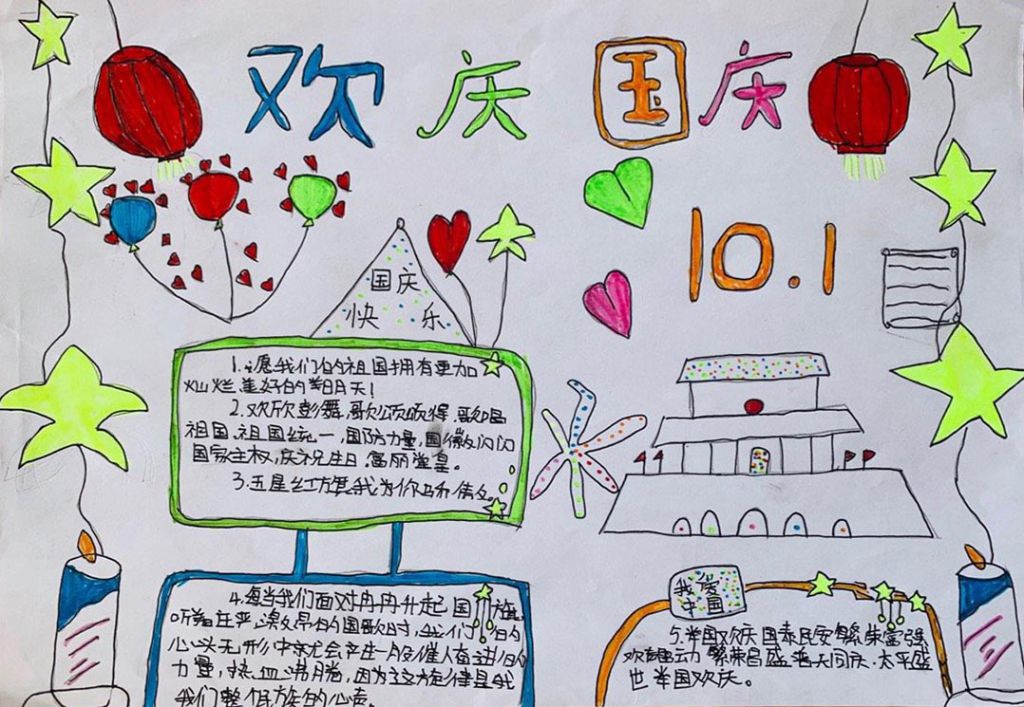 欢庆国庆
10.1
国庆
快乐
1.愿我们的祖国拥有更加
灿烂美好的明天！
2.欢欣彭舞,歌颂 歌唱
祖国.祖国统一,国防力量,国徽闪闪
国家主权,庆祝生日.富丽堂皇。
3.五星红 我为你
4.每当我们面对冉冉升起国旗,
听着庄严 的国歌时,我们的
心头无形中就会产生一股催人奋进的
力量,热血沸腾,因为这旋律是我
我们整个民族的心声。
我爱
中国
5.举国欢庆 国泰民安 繁荣富强
欢 繁荣昌盛.普天同庆.太平盛
世 举国欢庆。